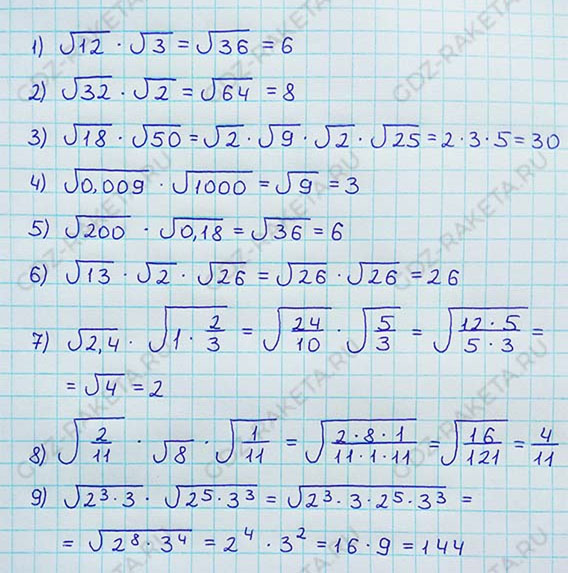 1) √12 · √3 = √36 = 6
2) √32 · √2 = √64 = 8
3) √18 · √50 = √2 · √9 · √2 · √25 = 2 · 3 · 5 = 30
4) √0,009 · √1000 = √9 = 3
5) √200 · √0,18 = √36 = 6
6) √13 · √2 · √26 = √26 · √26 = 26
7) √2,4 · √(1 · 2/3) = √(24/10) · √(5/3) = √((12 · 5)/(5 · 3)) =
= √4 = 2
8) √(2/11) · √8 · √(1/11) = √((2 · 8 · 1)/(11 · 1 · 11)) = √(16/121) = 4/11
9) √(2³ · 3) · √(2⁵ · 3³) = √(2³ · 3 · 2⁵ · 3³) =
= √(2⁸ · 3⁴) = 2⁴ · 3² = 16 · 9 = 144
GDZ-RAKETA.RU